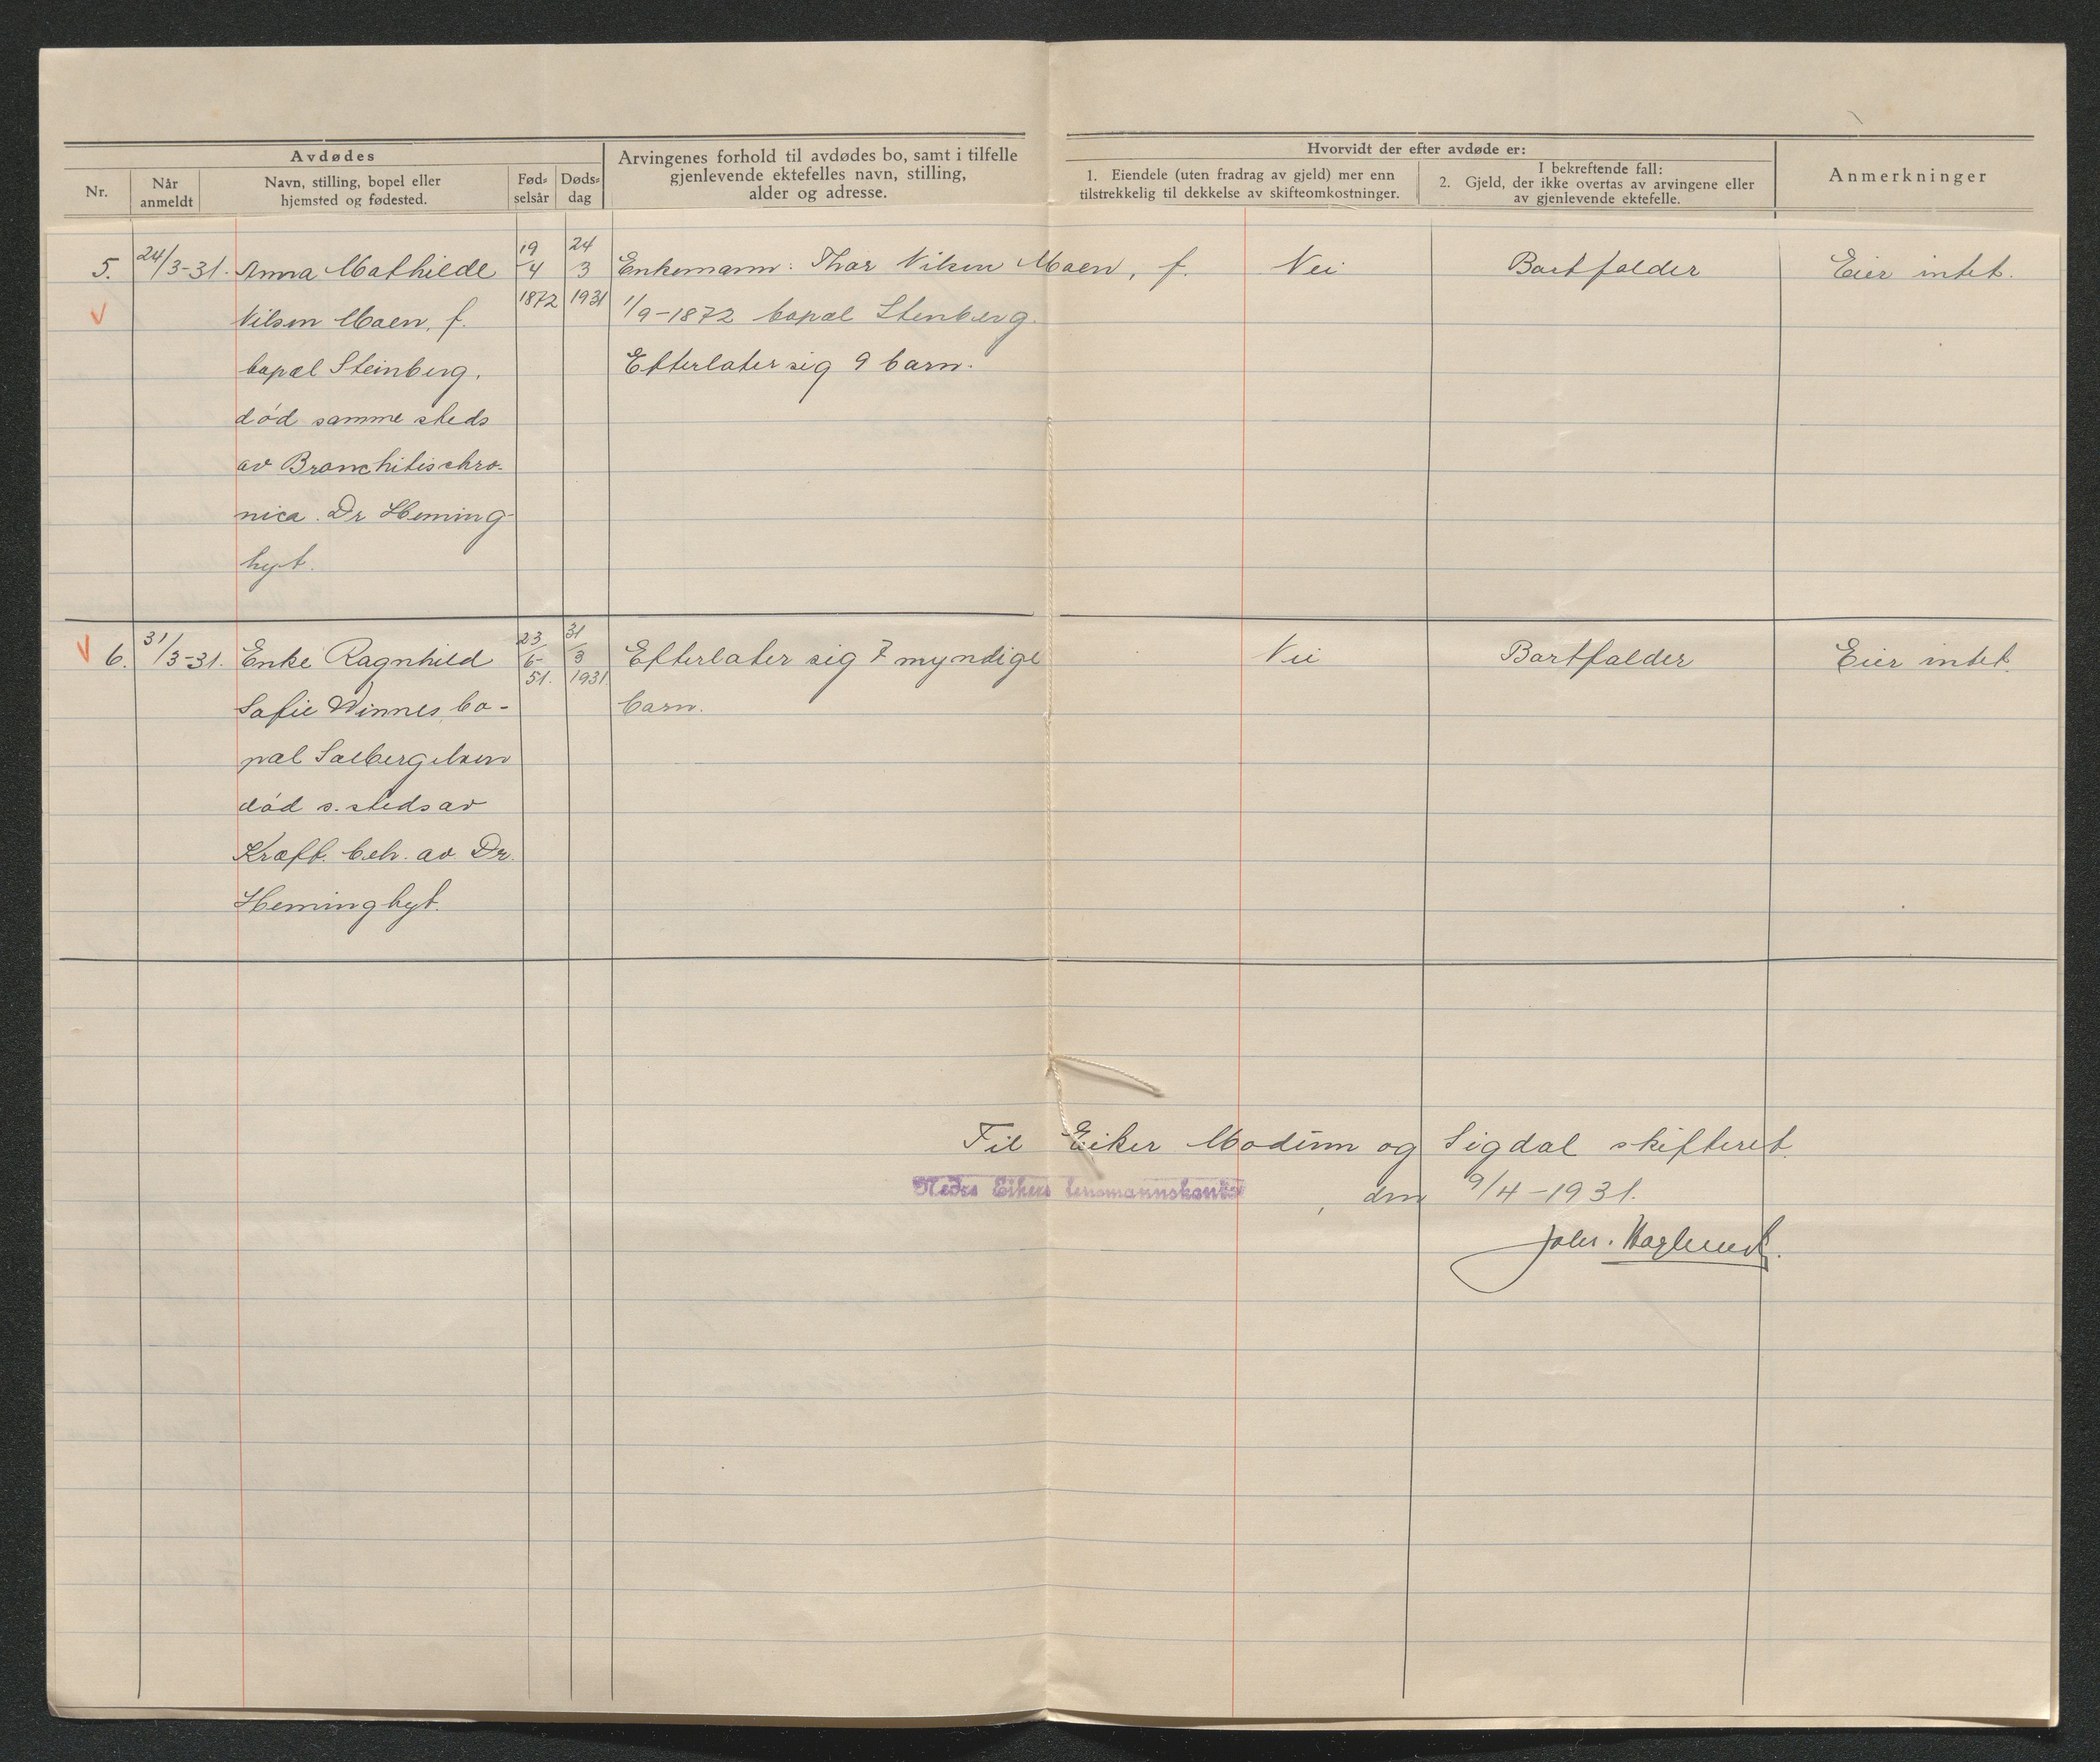 Avdødes
Nr.
Når anmeldt
Navn, stilling, bopel eller
hjemsted og fødested.
Fød-
selsår
Døds-
dag
Arvingenes forhold til avdødes bo, samt i tilfelle
gjenlevende ektefelles navn, stilling,
alder og adresse.
Hvorvidt der efter avdøde er:
1. Eiendele (uten fradrag av gjeld) mer enn
tilstrekkelig til dekkelse av skifteomkostninger.
I bekreftende fall:
2. Gjeld, der ikke overtas av arvingene eller
av gjenlevende ektefelle.
Anmerkninger
5. 24/3-31. Anna Mathilde 19/4 1872 24/3 1931 Enkemann: Thor Nilsen Moen, f. Nei Bortfalder Eier intet.
Nilsen Moen, f. 1/9-1872 bopæl Stenberg.
bopæl Steinberg. Efterlater sig 9 barn.
død samme steds
av Bronchitis chro-
nica. Dr Heming-
hyt.
6. 31/3-31. Enke Ragnhild 23/6-51. 31/3 1931. Efterlater sig 7 myndige Nei Bortfalder Eier intet.
Sofie Winnes, bo- barn.
pæl Solbergelven
død s. steds av
Kræft. beh. av Dr.
Heminghyt.
Til Eiker Modum og Sigdal skifteret.
Nedre Eikers lensmannskontor, den 9/4-1931.
Johs. Haglund.